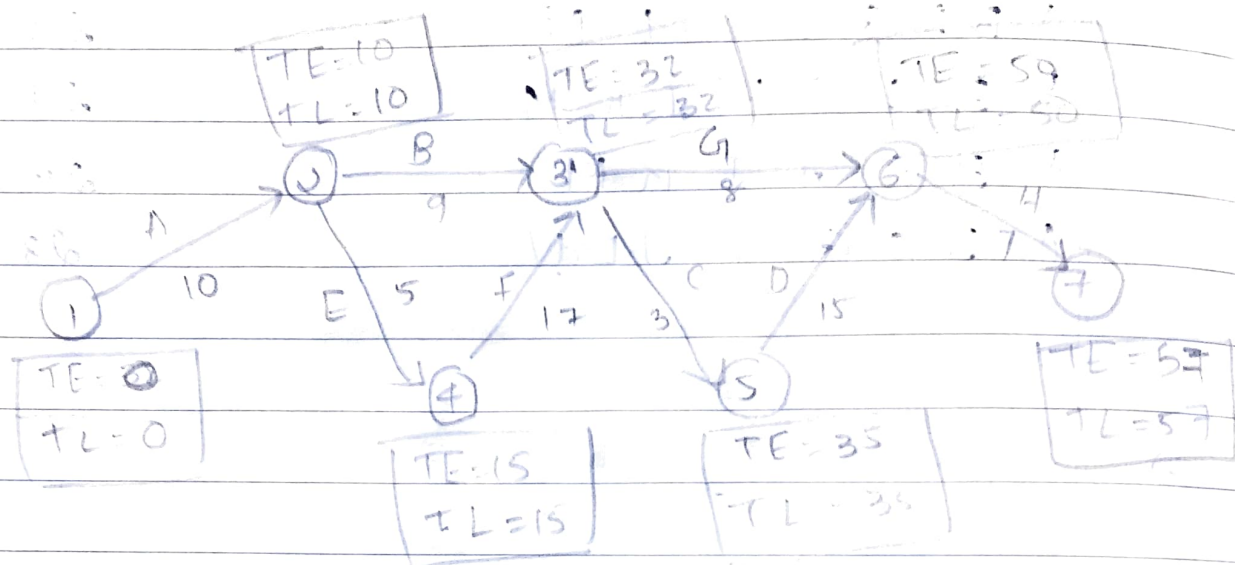 TE=10
TL=10
TE=32
TL=32
TE=50
TL=50
A
10
B
9
G
8
H
7
E
5
F
17
C
3
D
15
1
3
6
4
5
7
TE=0
TL=0
TE=15
TL=15
TE=35
TL=35
TE=57
TL=57